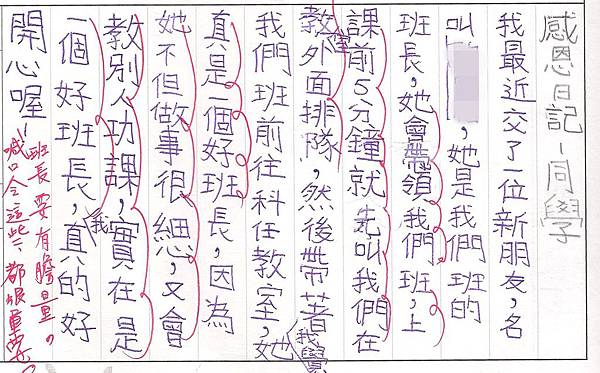 感恩日記-同學
我最近交了一位新朋友,名
叫,她是我們班的
班長,她會帶領我們班,上
課前5分鐘就先叫我們在
教室外面排隊,然後帶著
我們班前往科任教室,我覺她
真是一個好班長,因為
她不但做事很細,又會
教別人功課,實在是
一個好班長,我真的好
開心喔!
班長要有膽量。
喊口令這些,都很重要